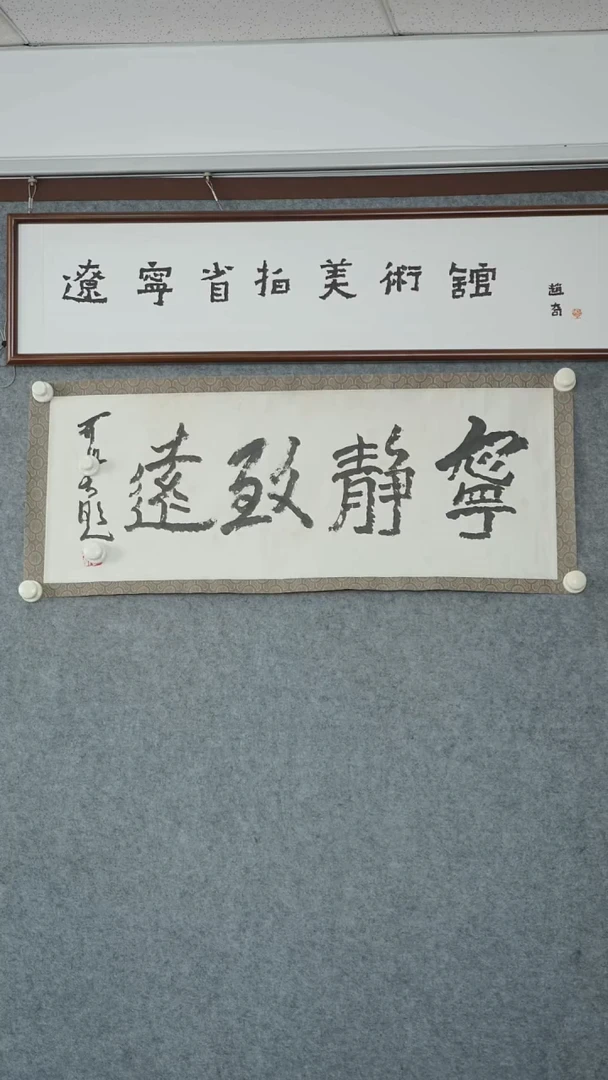 遼寧省拍美術館
趙奇
寧靜致遠